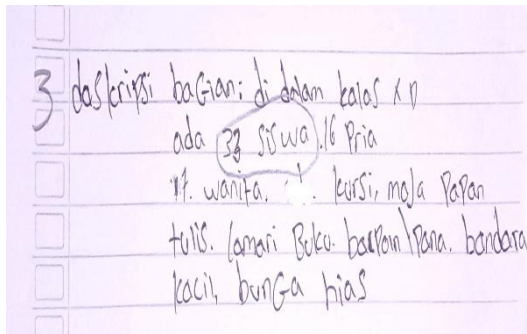 3 daskripsi bagian: di dalam kalas X D
ada 33 siswa. 16 Pria
17. wanita. kursi, maja Papan
tulis. lamari Buku. bandara
kacil, bunga hias